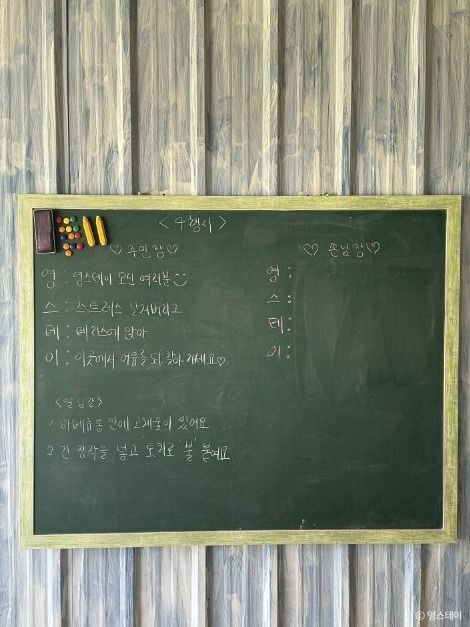 <4행시>
♡ 주인장 ♡
영 : 영스테이 오신 여러분
스 : 스트레스 날려버리고
테 : 테라스에 앉아
이 : 이곳에서 여유를 되찾아 가세요♡
♡ 손님장 ♡
영 :
스 :
테 :
이 :
<알림장>
1 바베큐통 안에 고체숯이 있어요
2 긴 장작을 넣고 토치로 '불' 붙여요
ⓒ 영스테이